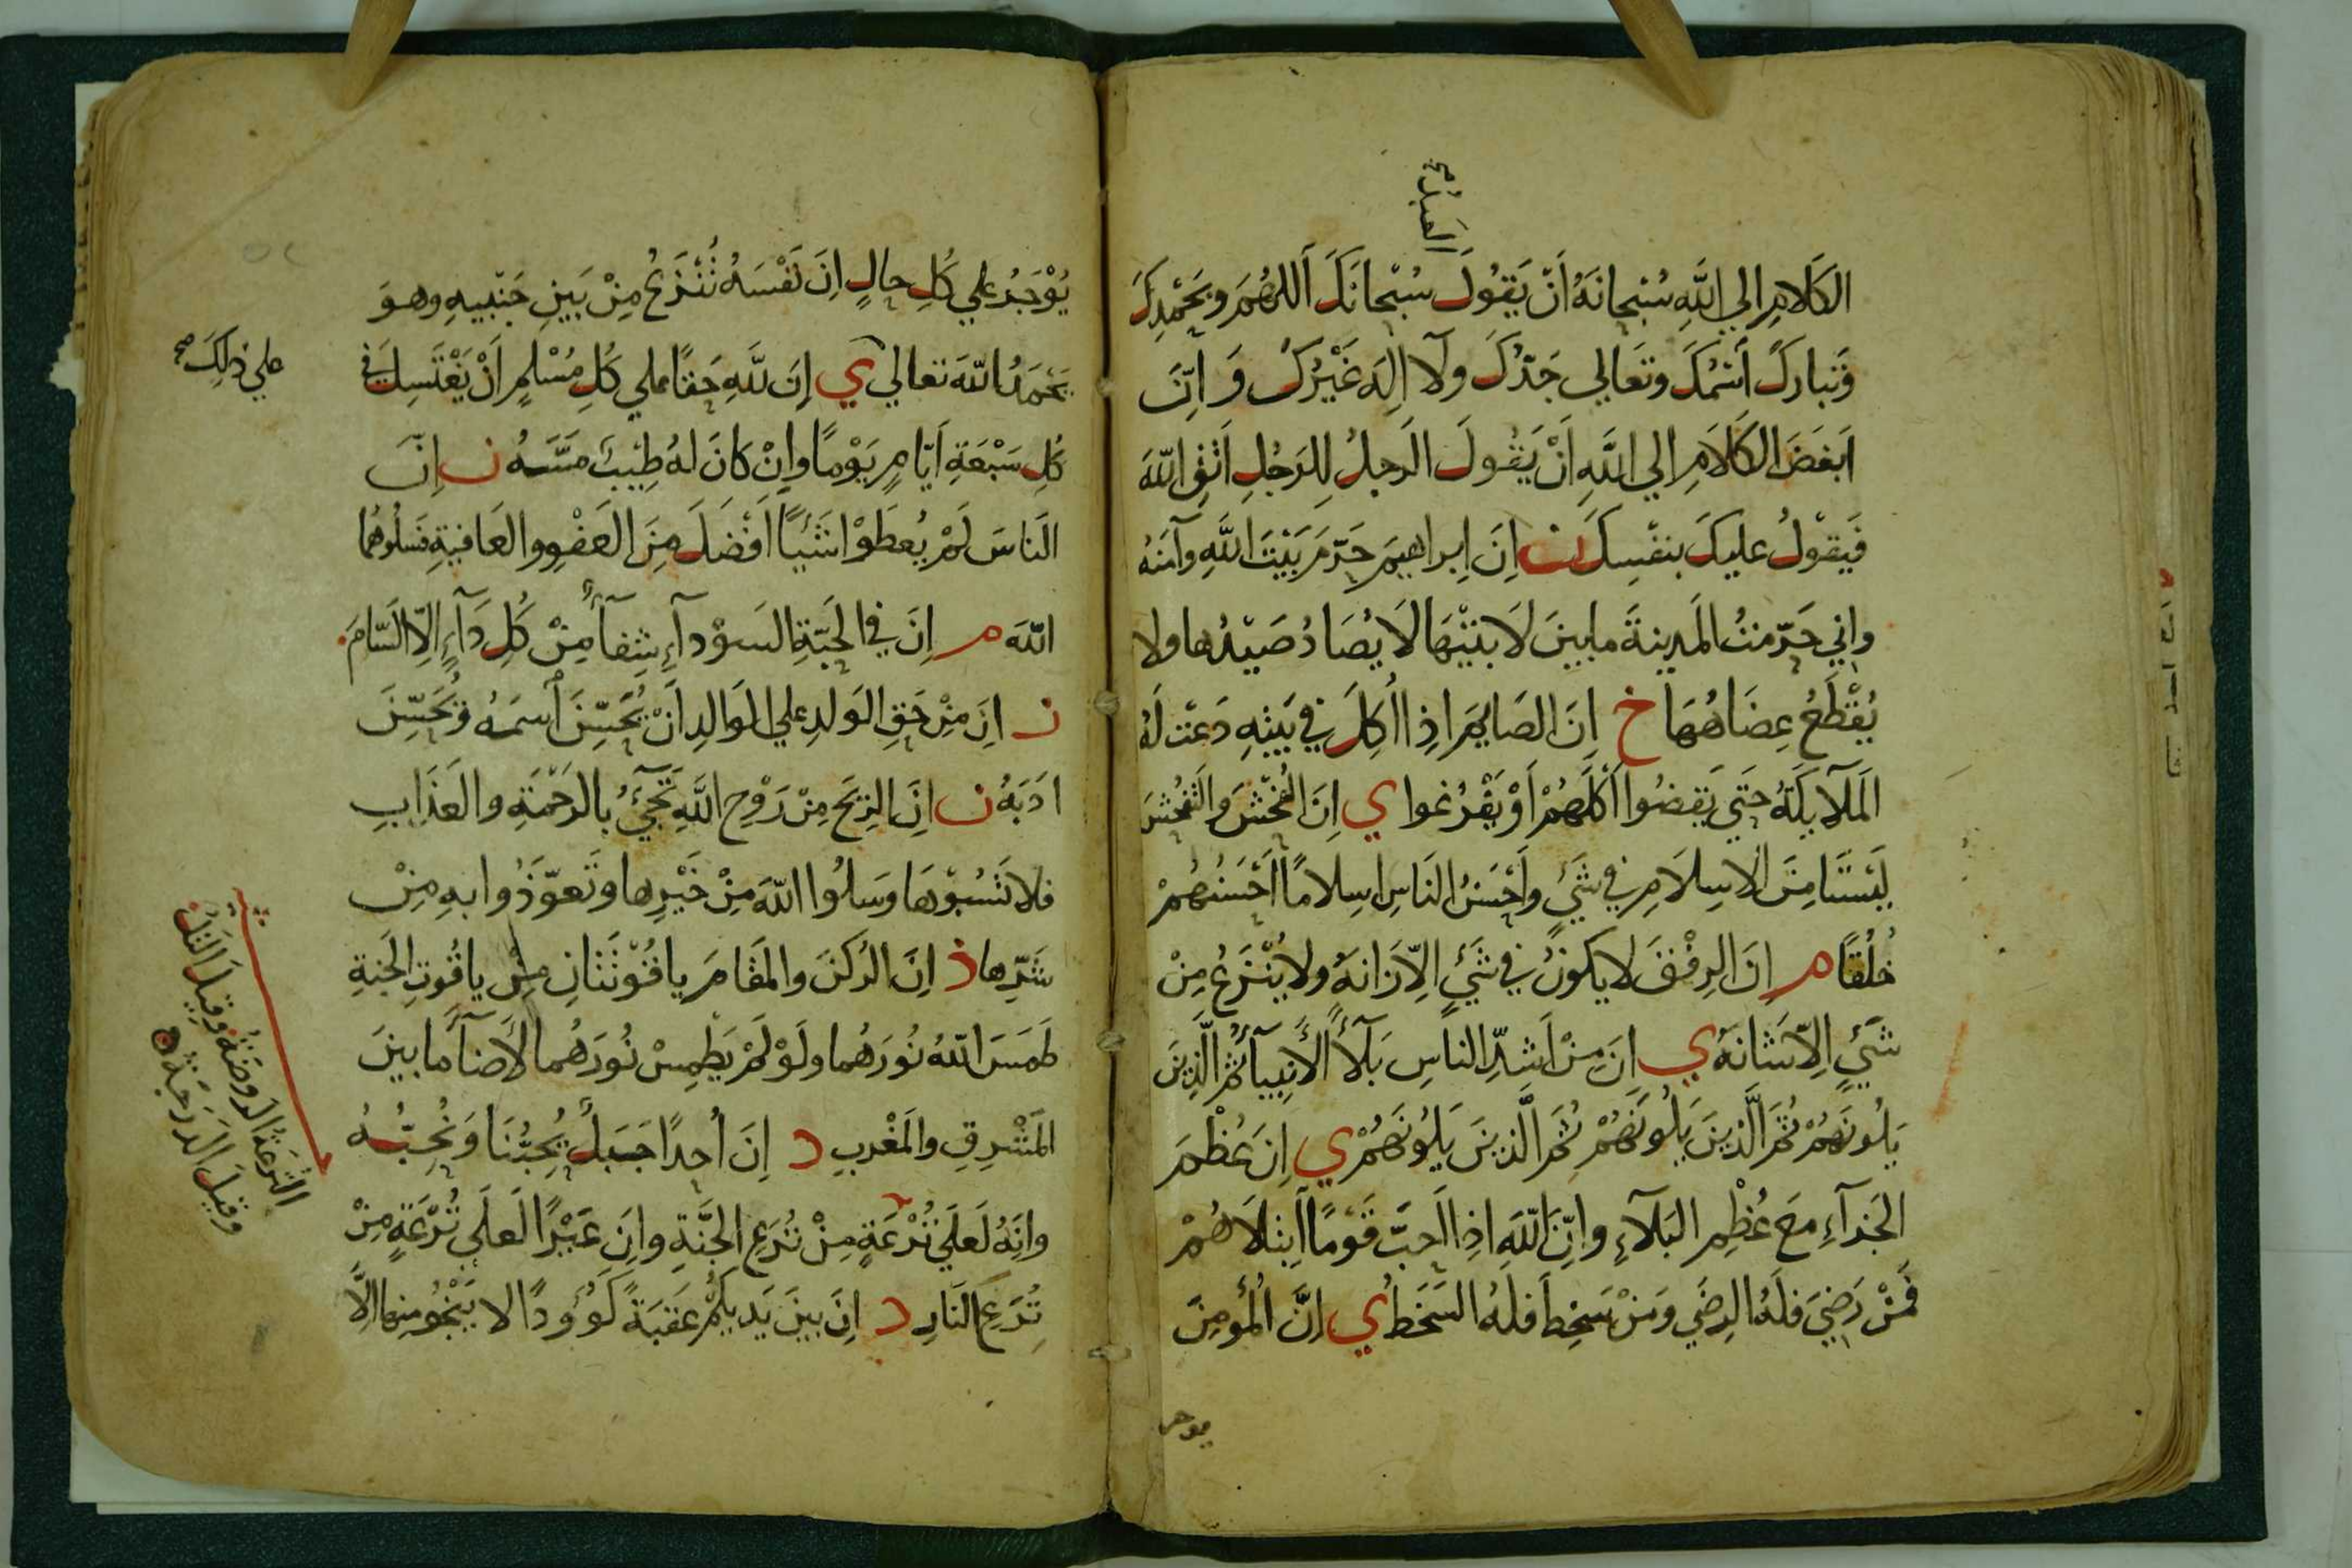 العبد صح
الكَلامِ الي اللهِ سُبحانَهُ اَنْ يَقُولَ سُبْحانَكَ اَللهُمَ وبحَمْدِكَ
وَتبارَكَ اَسْمُكَ وتَعَالي جَدّكَ ولآ اِلَه غَيْرُكَ وَ اِنّ
اَبغَضَ الكَلَامِ الي اللهِ اَنْ يَقُولَ الَرجلُ لِلرَجُلِ اتقِ اللهَ
فَيقوْلُ عليكَ بنفْسِكَ ن اِنَ اِبراهيمَ حَرّمَ بَيْتَ اللهِ وآمَنَهُ
واِني حَرّمتُ المَدينةَ ما بينَ لَابتَيْهَا لَا يُصَادُ صَيْدُها ولا
يُقْطَعُ عِضَاهُهَا خ اِنَ الصَايمَ اِذا اُكِلَ في بَيتِهِ دَعَتْ لَهُ
المَلآيكَةُ حَتي يَقضُوا اَكْلَهُمْ اَوْ يَفْرُغوا ي اِنَ الفُحْشَ والتَفحُشَ
لَيْسَتَا مِنَ الاِسلَامِ في شَيءٍ واَحْسَنُ النَاسِ اِسلامًا اَحْسَنُهُمْ
خُلُقًا م اِنَ الرِفْقَ لا يكونُ في شَيءٍ اِلّا زَانهُ ولا يُنْزَعُ مِنْ
شَيءٍ اِلّا شَانَهُ ي اِنَ مِنْ اَشدِّ الناسِ بَلآءً الأنبيآءُ ثمَ الّذِينَ
يَلُونَهُمْ ثُمَ الَّذينَ يَلُونَهُمْ ثُمَ الَّذينَ يَلُونَهُمْ ي اِنَ عُظْمَ
الجَزآءِ مَعَ عُظْمِ البَلآءِ واِنّ اللهَ اِذا اَحبَّ قَومًا ابتلَاهُمْ
فَمَنْ رَضِيَ فلَهُ الرِضَي وَمَنْ سَخِطَ فلَهُ السَخَطُ ي اِنَّ المُؤمِنَ
يوجر
يُوْجَرُ علي كُلِ حالٍ اِنَ نَفْسَهُ تُنْزَعُ مِنْ بَينِ جَنْبيهِ وهوَ
يَحْمَدُ اللهَ تعالي ي اِنَ للهِ حَقًا علي كُلِ مُسْلمٍ اَنْ يَغْتَسِلَ في
علي ذلِكَ صح
كُلِ سَبْعَةِ اَيّامٍ يَوْمًا واِنْ كانَ لهُ طِيْبٌ مَسَّهُ ن اِنّ
الَناسَ لَمْ يُعطَوْا شَيْأً اَفْضَلَ مِنَ العَفْوِ والعَافيةِ فسَلُوهُما
اللهَ م اِنَ في الحَبّةِ السَوْدآءِ شِفآءً مِنْ كُلِ دَآءٍ اِلّا السَّامَ
ن اِنَ مِنْ حَقِ الوَلدِ علي الوَالدِ اَنْ يُحَسِّنَ اَسمَهُ وَيُحَسِّنَ
ادَبَهُ ن اِنَ الرِيحَ مِنْ رَوْحِ اللهِ تَجيءُ بالرَحْمَةِ والعَذَابِ
فلا تَسُبوْهَا وَسَلُوا اللهَ مِنْ خَيْرِها وتَعوّذُوا بهِ مِنْ
شَرِّها ذ اِنَ الرُكنَ والمَقَامَ ياقُوْتَتَانِ مِنْ ياقُوتِ الجَنةِ
طَمَسَ اللهُ نُورَهُما ولَوْ لَمْ يَطمِسْ نُورَهُما لأضآءَ ما بينَ
المَشْرِقِ والمَغْربِ د اِنَ اُحدًا جَبَلٌ يُحِبُّنَا وَنُحِبُّهُ
وانَهُ لَعلَي تُرْعَةٍ مِنْ تُرَعِ الجَنَّةِ واِنَ عَيْرًا لَعلَي تُرْعَةٍ مِنْ
تُرَعِ النَارِ د اِنَ بينَ يَديكمْ عَقَبَةً كَؤُودًا لا يَنْجُو منها اِلَّا
التُرعَةُ الروضَةُ وقيلَ التَل
وقيلَ الدَرجَة